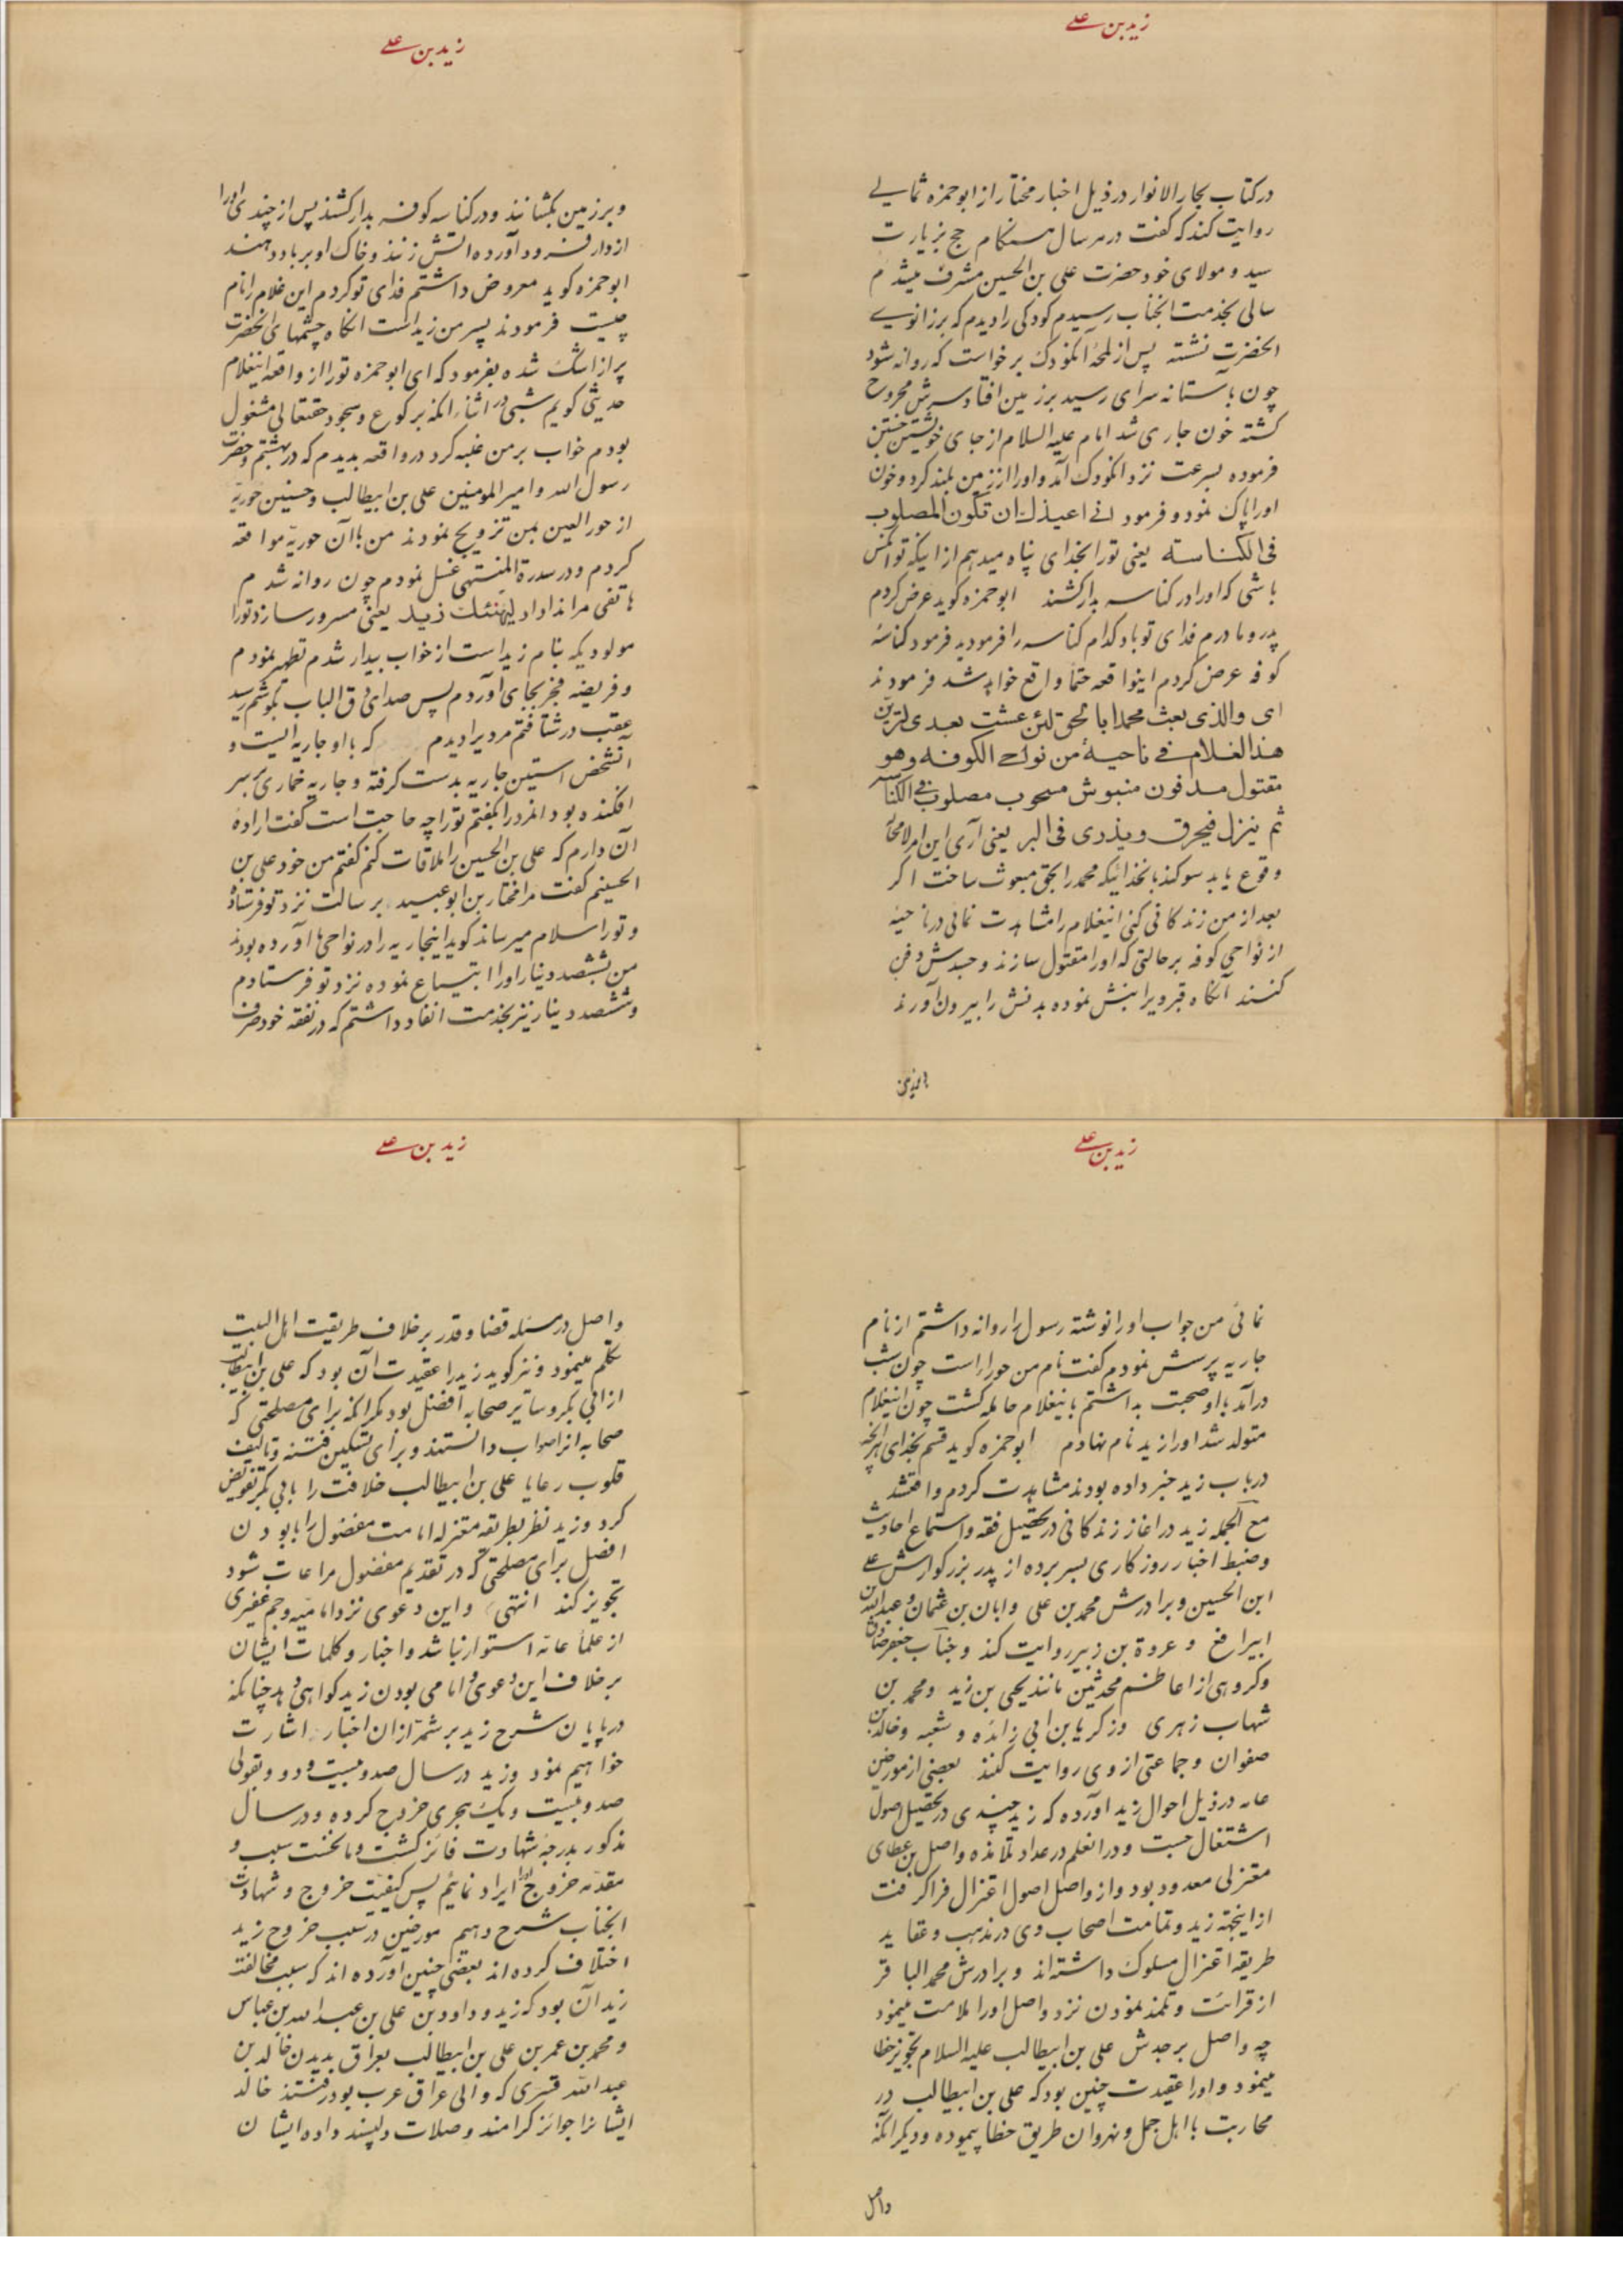 زید بن علی
در کتاب بحار الانوار در ذیل اخبار مختار از ابوحمزه ثمالی
روایت کند که گفت در هر سال هنکام حج بزیارت
سید و مولای خود حضرت علی بن الحسین مشرف میشدم
سالی بخدمت انجناب رسیدم کودکی را دیدم که بر زانوی
انحضرت نشسته پس از لمحهٔ آنکودک برخواست که روانه شود
چون بآستانه سرای رسید بر زمین افتاد و سرش مجروح
کشته خون جاری شد امام علیه السلام از جای خویشتن جستن
فرموده بسرعت نزد انکودک آمد و او را از زمین بلند کرد و خون
او را پاک نمود و فرمود انی اعیذک ان تکون المصلوب
فی الکناسته یعنی تو را بخدای پناه میدهم از اینکه تو انکس
باشی که او را در کناسه بدار کشند ابوحمزه کوید عرض کردم
پدر و مادرم فدای تو باد کدام کناسه را فرمودید فرمود کناسهٔ
کوفه عرض کردم اینواقعه حتما واقع خواهد شد فرمودند
ای والذی بعث محمدا بالحق لئن عشت بعدی لترین
هذا الغلام فی ناحیة من نواحی الکوفه وهو
مقتول مدفون منبوش مسحوب مصلوب فی الکناسة
ثم ینزل فیحرق ویذری فی البر یعنی آری این امر لامحاله
وقوع یابد سوکند بانخدائیکه محمد را بحق مبعوث ساخت اکر
بعد از من زندکانی کنی اینغلام را مشاهدت نمائی در ناحیهٔ
از نواحی کوفه بر حالتی که او را مقتول سازند و جسدش دفن
کنند آنکاه قبر ویرا نبش نموده بدنش را بیرون آورند
و بر زمین
زید بن علی
و بر زمین بکشانند و در کناسه کوفه بدار کشند پس از چندی او را
از دار فرود آورده اتش زنند و خاک او بر باد دهند
ابوحمزه کوید معروض داشتم فدای تو کردم این غلام را نام
چیست فرمودند پسر من زید است انکاه چشمهای انحضرت
پر از اشک شده بفرمود که ای ابوحمزه تو را از واقعه اینغلام
حدیثی کویم شبی در اثناء انکه برکوع و سجود حقتعالی مشغول
بودم خواب بر من غلبه کرد در واقعه بدیدم که در بهشتم و حضرت
رسول الله و امیر المومنین علی بن ابیطالب و حسنین حوریهٔ
از حور العین بمن تزویج نمودند من با آن حوریه مواقعه
کردم و در سدرة المنتهی غسل نمودم چون روانه شدم
هاتفی مرا ندا داد لیهنئک زید یعنی مسرور سازد تو را
مولودیکه بنام زید است از خواب بیدار شدم تطهیر نمودم
و فریضه فجر بجای آوردم پس صدای دق الباب بکوشم رسید
بعقب در شتافتم مردیرا دیدم که با او جاریه ایست و
آنشخص استین جاریه بدست کرفته و جاریه خماری بر سر
افکنده بود انمرد را بکفتم تو را چه حاجت است کفت ارادهٔ
آن دارم که علی بن الحسین را ملاقات کنم کفتم من خود علی بن
الحسینم کفت مرا مختار بن ابوعبید برسالت نزد تو فرستاده
و تو را سلام میرساند کوید اینجاریه را در نواحی ما آورده بودند
من بششصد دینار او را ابتیاع نموده نزد تو فرستادم
و ششصد دینار نیز بخدمت انفاد داشتم که در نفقه خود صرف
زید بن علی
نمائی من جواب او را نوشته رسول را روانه داشتم از نام
جاریه پرسش نمودم کفت نام من حوراء است چون شب
درآمد با او صحبت بداشتم باینغلام حامله کشت چون اینغلام
متولد شد او را زید نام نهادم ابوحمزه کوید قسم بخدای هر آنچه
در باب زید خبر داده بودند مشاهدت کردم و اقتشد
مع الجمله زید در اغاز زندکانی در تحصیل فقه و استماع احادیث
و ضبط اخبار روزکاری بسر برده از پدر بزرکوارش علی
ابن الحسین و برادرش محمد بن علی و ابان بن عثمان و عبیدالله بن
ابیرافع و عروة بن زبیر روایت کند و جناب جعفر صادق
و کروهی از اعاظم محدثین مانند یحیی بن زید و محمد بن
شهاب زهری و زکریا بن ابی زائده و شعبه و خالد بن
صفوان و جماعتی از وی روایت کنند بعضی از مورخین
عامه در ذیل احوال زید اورده که زید چندی در تحصیل اصول
اشتغال جست و در انعلم در عداد تلامذه واصل بن عطای
معتزلی معدود بود و از واصل اصول اعتزال فرا کرفت
از اینجهة زید و تمامت اصحاب وی در مذهب و عقاید
طریقه اعتزال مسلوک داشته‌اند و برادرش محمد الباقر
از قرائت و تلمذ نمودن نزد واصل او را ملامت مینمود
چه واصل بر جدش علی بن ابیطالب علیه السلام تجویز خطا
مینمود و او را عقیدت چنین بود که علی بن ابیطالب در
محاربت با اهل جمل و نهروان طریق خطا پیموده و دیکر آنکه
واصل
زید بن علی
واصل در مسئله قضا و قدر بر خلاف طریقت اهل البیت
تکلم مینمود و نیز کوید زید را عقیدت آن بود که علی بن ابیطالب
از ابی بکر و سایر صحابه افضل بود مکر انکه برای مصلحتی که
صحابه انرا صواب دانستند و برای تسکین فتنه و تالیف
قلوب رعایا علی بن ابیطالب خلافت را بابی بکر تفویض
کرد و زید نظر بطریقه معتزله امامت مفضول را بابودن
افضل برای مصلحتی که در تقدیم مفضول مراعات شود
تجویز کند انتهی و این دعوی نزد امامیه و جم غفیری
از علماء عامه استوار نباشد و اخبار و کلمات ایشان
بر خلاف این دعوی و امامی بودن زید کواهی دهد چنانکه
در پایان شرح زید بر شمهٔ از ان اخبار اشارت
خواهیم نمود و زید در سال صد و بیست و دو و بقولی
صد و بیست و یک هجری خروج کرده و در سال
مذکور بدرجه شهادت فائز کشت و ما نخست سبب و
مقدمه خروج او را ایراد نمائیم پس کیفیت خروج و شهادت
انجناب شرح دهیم مورخین در سبب خروج زید
اختلاف کرده‌اند بعضی چنین اورده‌اند که سبب مخالفت
زید آن بود که زید و داود بن علی بن عبد الله بن عباس
و محمد بن عمر بن علی بن ابیطالب بعراق بدیدن خالد بن
عبد الله قسری که والی عراق عرب بود رفتند خالد
ایشانرا جوائز کرامند و صلات دلپسند داده ایشان